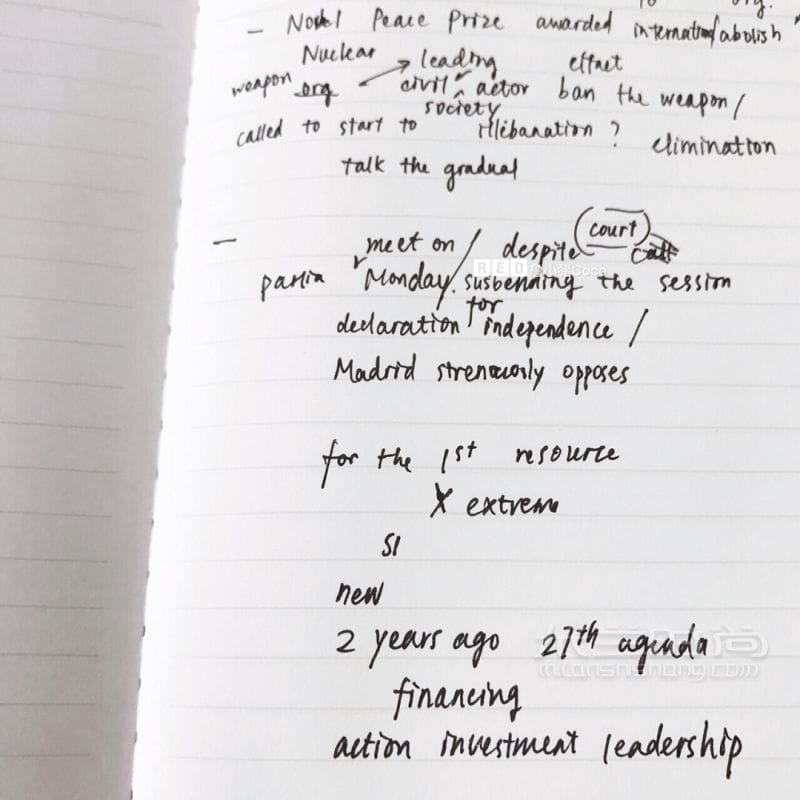 to org.
— Novel Peace Prize awarded internation/abolish
Nuclear leading effact
weapon org civil actor ban the weapon /
society
called to start to illebanation? elimination
talk the gradual
— meet on / despite court
parlia Monday. susbending the session
declaration for independence /
Madrid strenuously opposes
for the 1st resource
X extrem
SI
new
2 years ago 27th agenda
financing
action investment leadership
RED
Coco
mianshishang.com